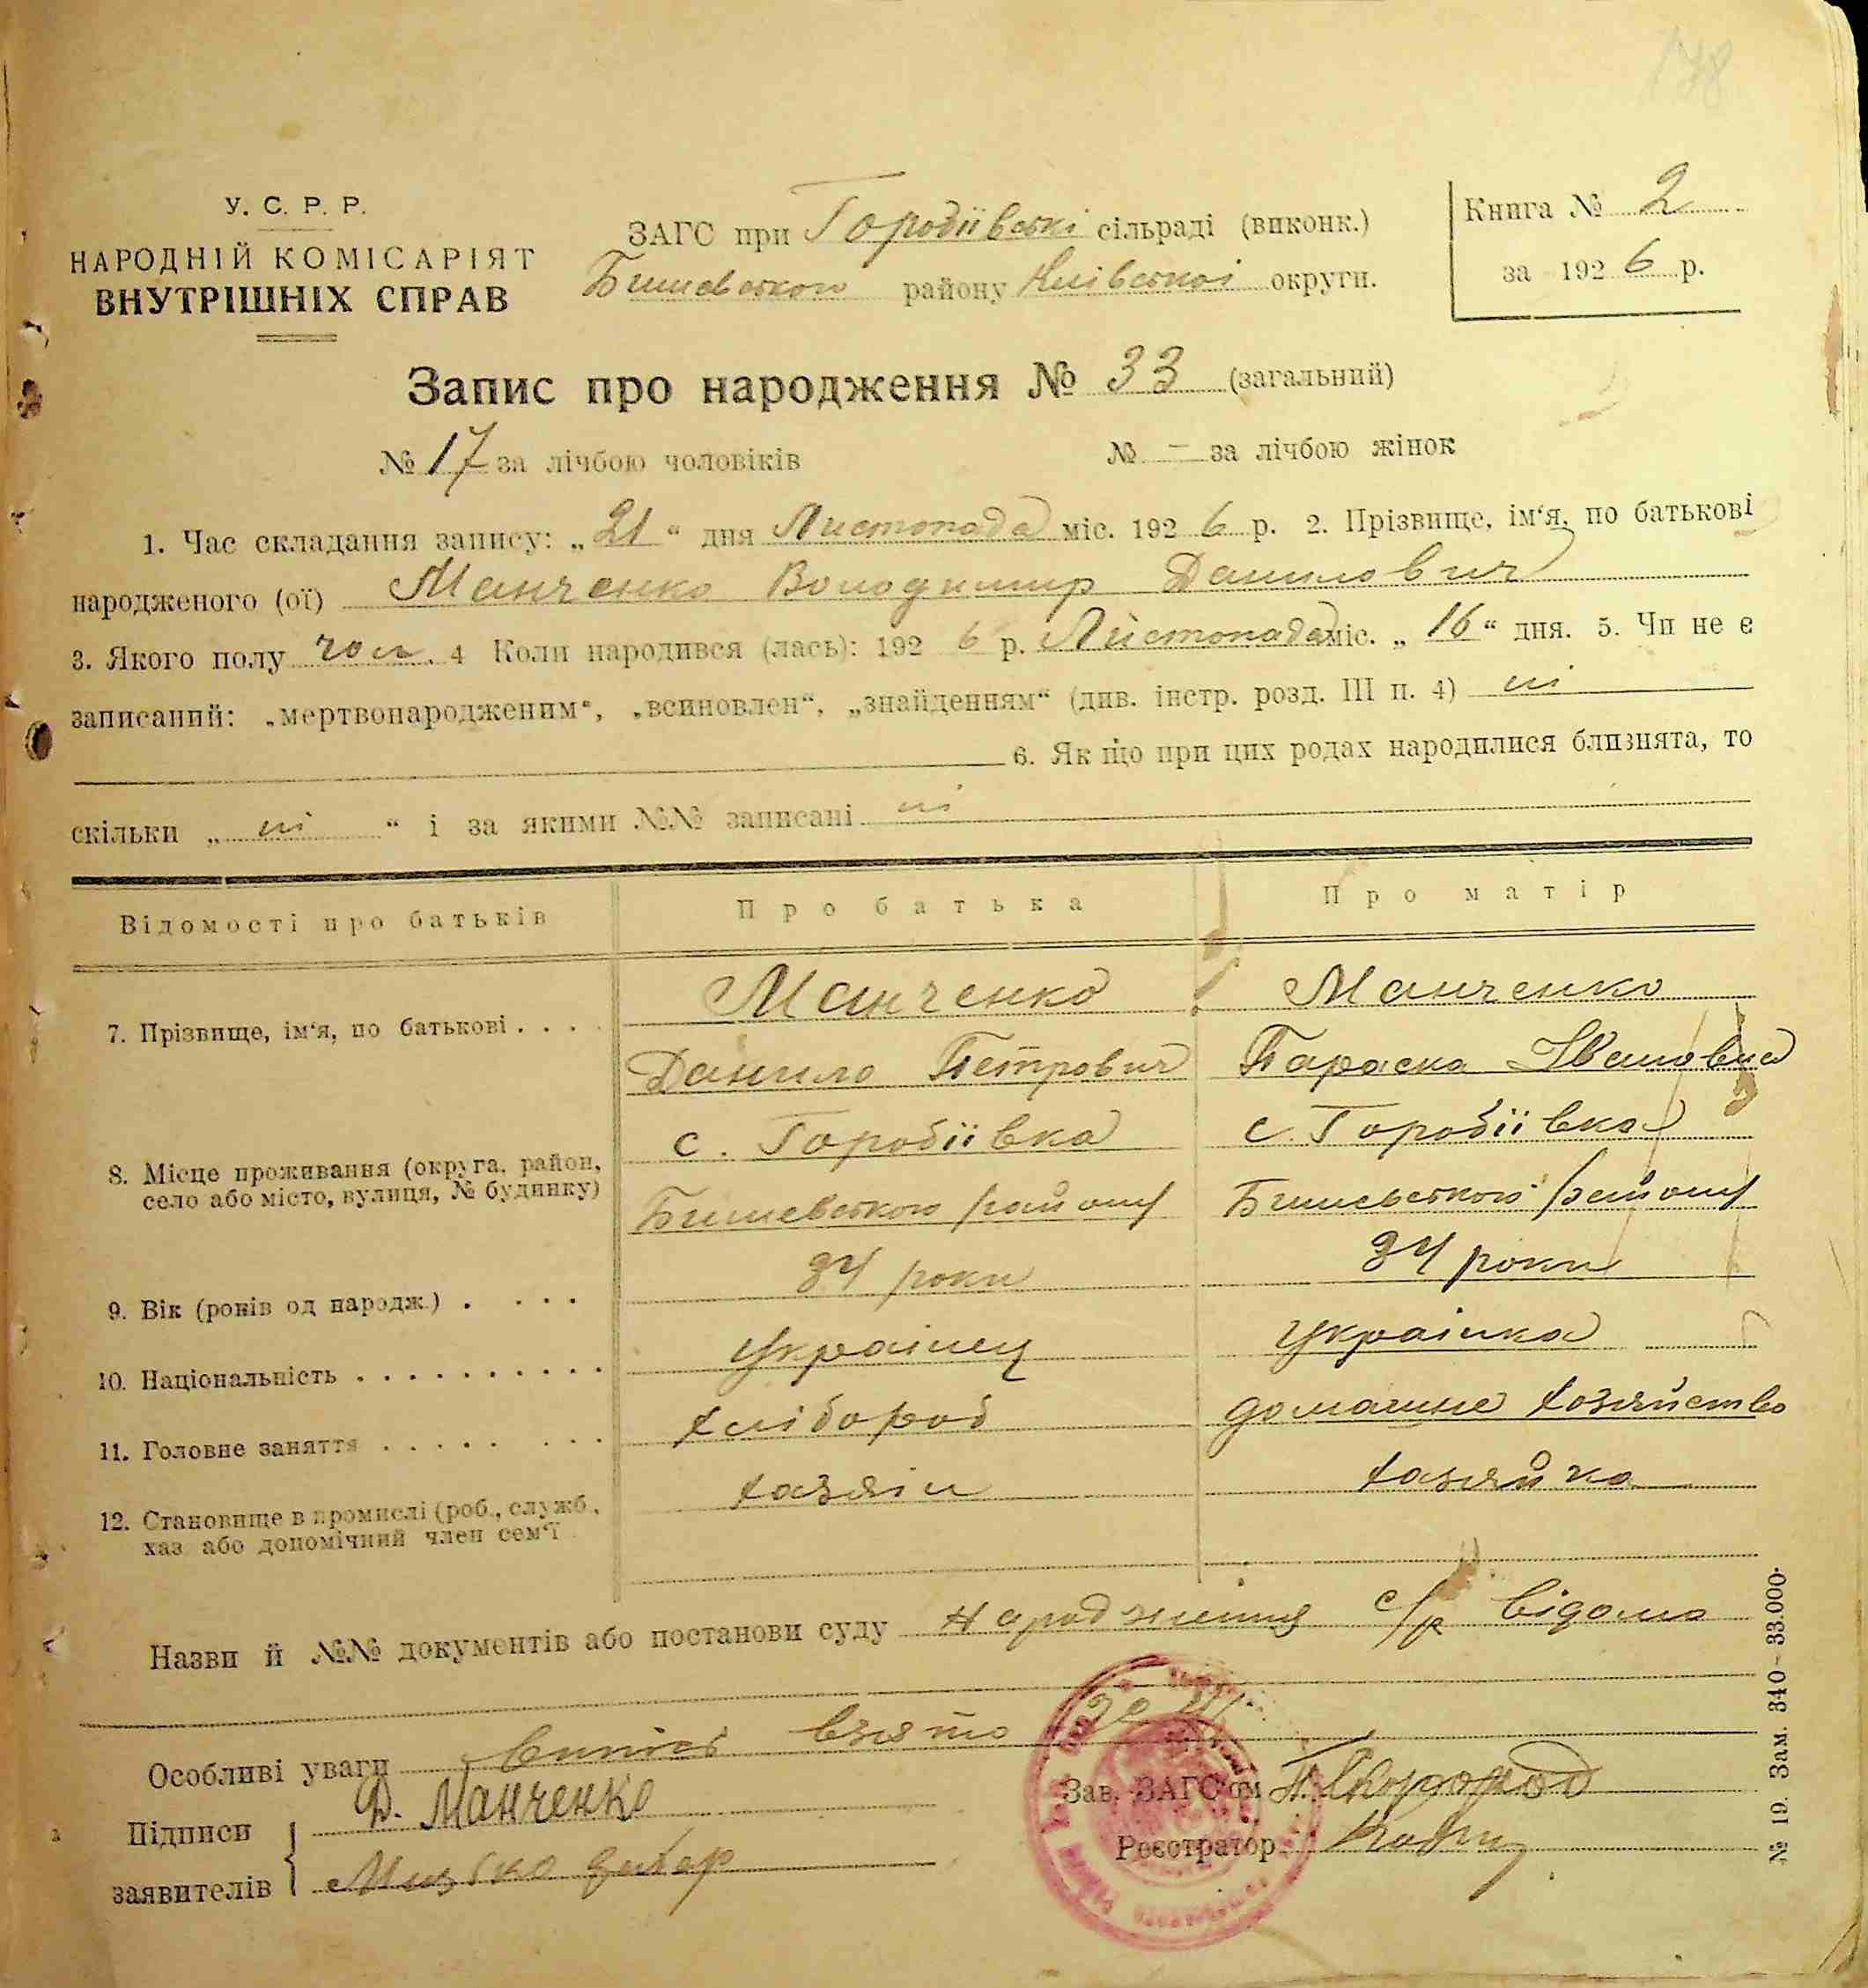 178
У. С. Р. Р.
НАРОДНІЙ КОМІСАРІЯТ
ВНУТРІШНІХ СПРАВ
ЗАГС при Горобіївські сільраді (виконк.)
Бишевського району Київської округи.
Книга № 2
за 1926 р.
Запис про народження № 33 (загальний)
№ 17 за лічбою чоловіків № — за лічбою жінок
1. Час складання запису: „21“ дня Листопада міс. 1926 р. 2. Прізвище, ім‘я, по батькові
народженого (ої) Манченко Володимир Данилович
3. Якого полу чол. 4 Коли народився (лась): 1926 р. Листопада міс. „16“ дня. 5. Чи не є
записаний: „мертвонародженим“, „всиновлен“, „знайденням“ (див. інстр. розд. III п. 4) ні
6. Як що при цих родах народилися близнята, то
скільки „ ні “ і за якими №№ записані ні
Відомості про батьків Про батька Про матір
7. Прізвище, ім‘я, по батькові . . . . Манченко Манченко
Данило Петрович Параска Івановна
с. Горобіївка с. Горобіївка
8. Місце проживання (округа, район,
село або місто, вулиця, № будинку) Бишевського району Бишевського району
9. Вік (років од народж.) . . . . 34 роки 34 роки
10. Національність . . . . . . . . . . Українец Українка
11. Головне заняття . . . . . . . . хлібороб домашне хозяйство
12. Становище в промислі (роб., служб., хазяін хазяйка
хаз або допомічний член сем‘ї
Назви й №№ документів або постанови суду Народження с/р відомо
Особливі уваги взято
Підписи Д. Манченко
заявителів
Зав. ЗАГС‘ом
Реєстратор
№ 19. Зам. 340–33.000.